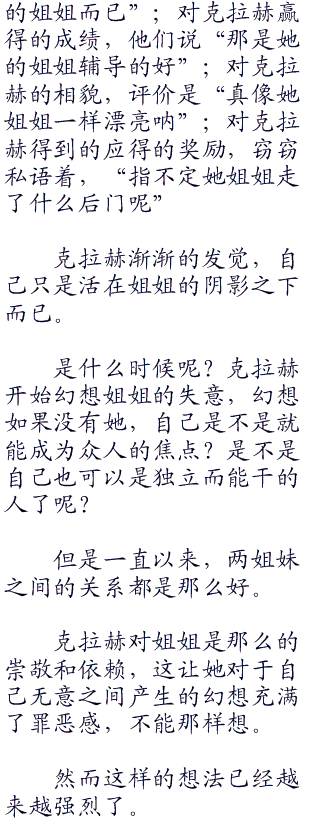 的姐姐而已”；对克拉赫赢
得的成绩，他们说“那是她
的姐姐辅导的好”；对克拉
赫的相貌，评价是“真像她
姐姐一样漂亮呐”；对克拉
赫得到的应得的奖励，窃窃
私语着，“指不定她姐姐走
了什么后门呢”
克拉赫渐渐的发觉，自
己只是活在姐姐的阴影之下
而已。
是什么时候呢？克拉赫
开始幻想姐姐的失意，幻想
如果没有她，自己是不是就
能成为众人的焦点？是不是
自己也可以是独立而能干的
人了呢？
但是一直以来，两姐妹
之间的关系都是那么好。
克拉赫对姐姐是那么的
崇敬和依赖，这让她对于自
己无意之间产生的幻想充满
了罪恶感，不能那样想。
然而这样的想法已经越
来越强烈了。